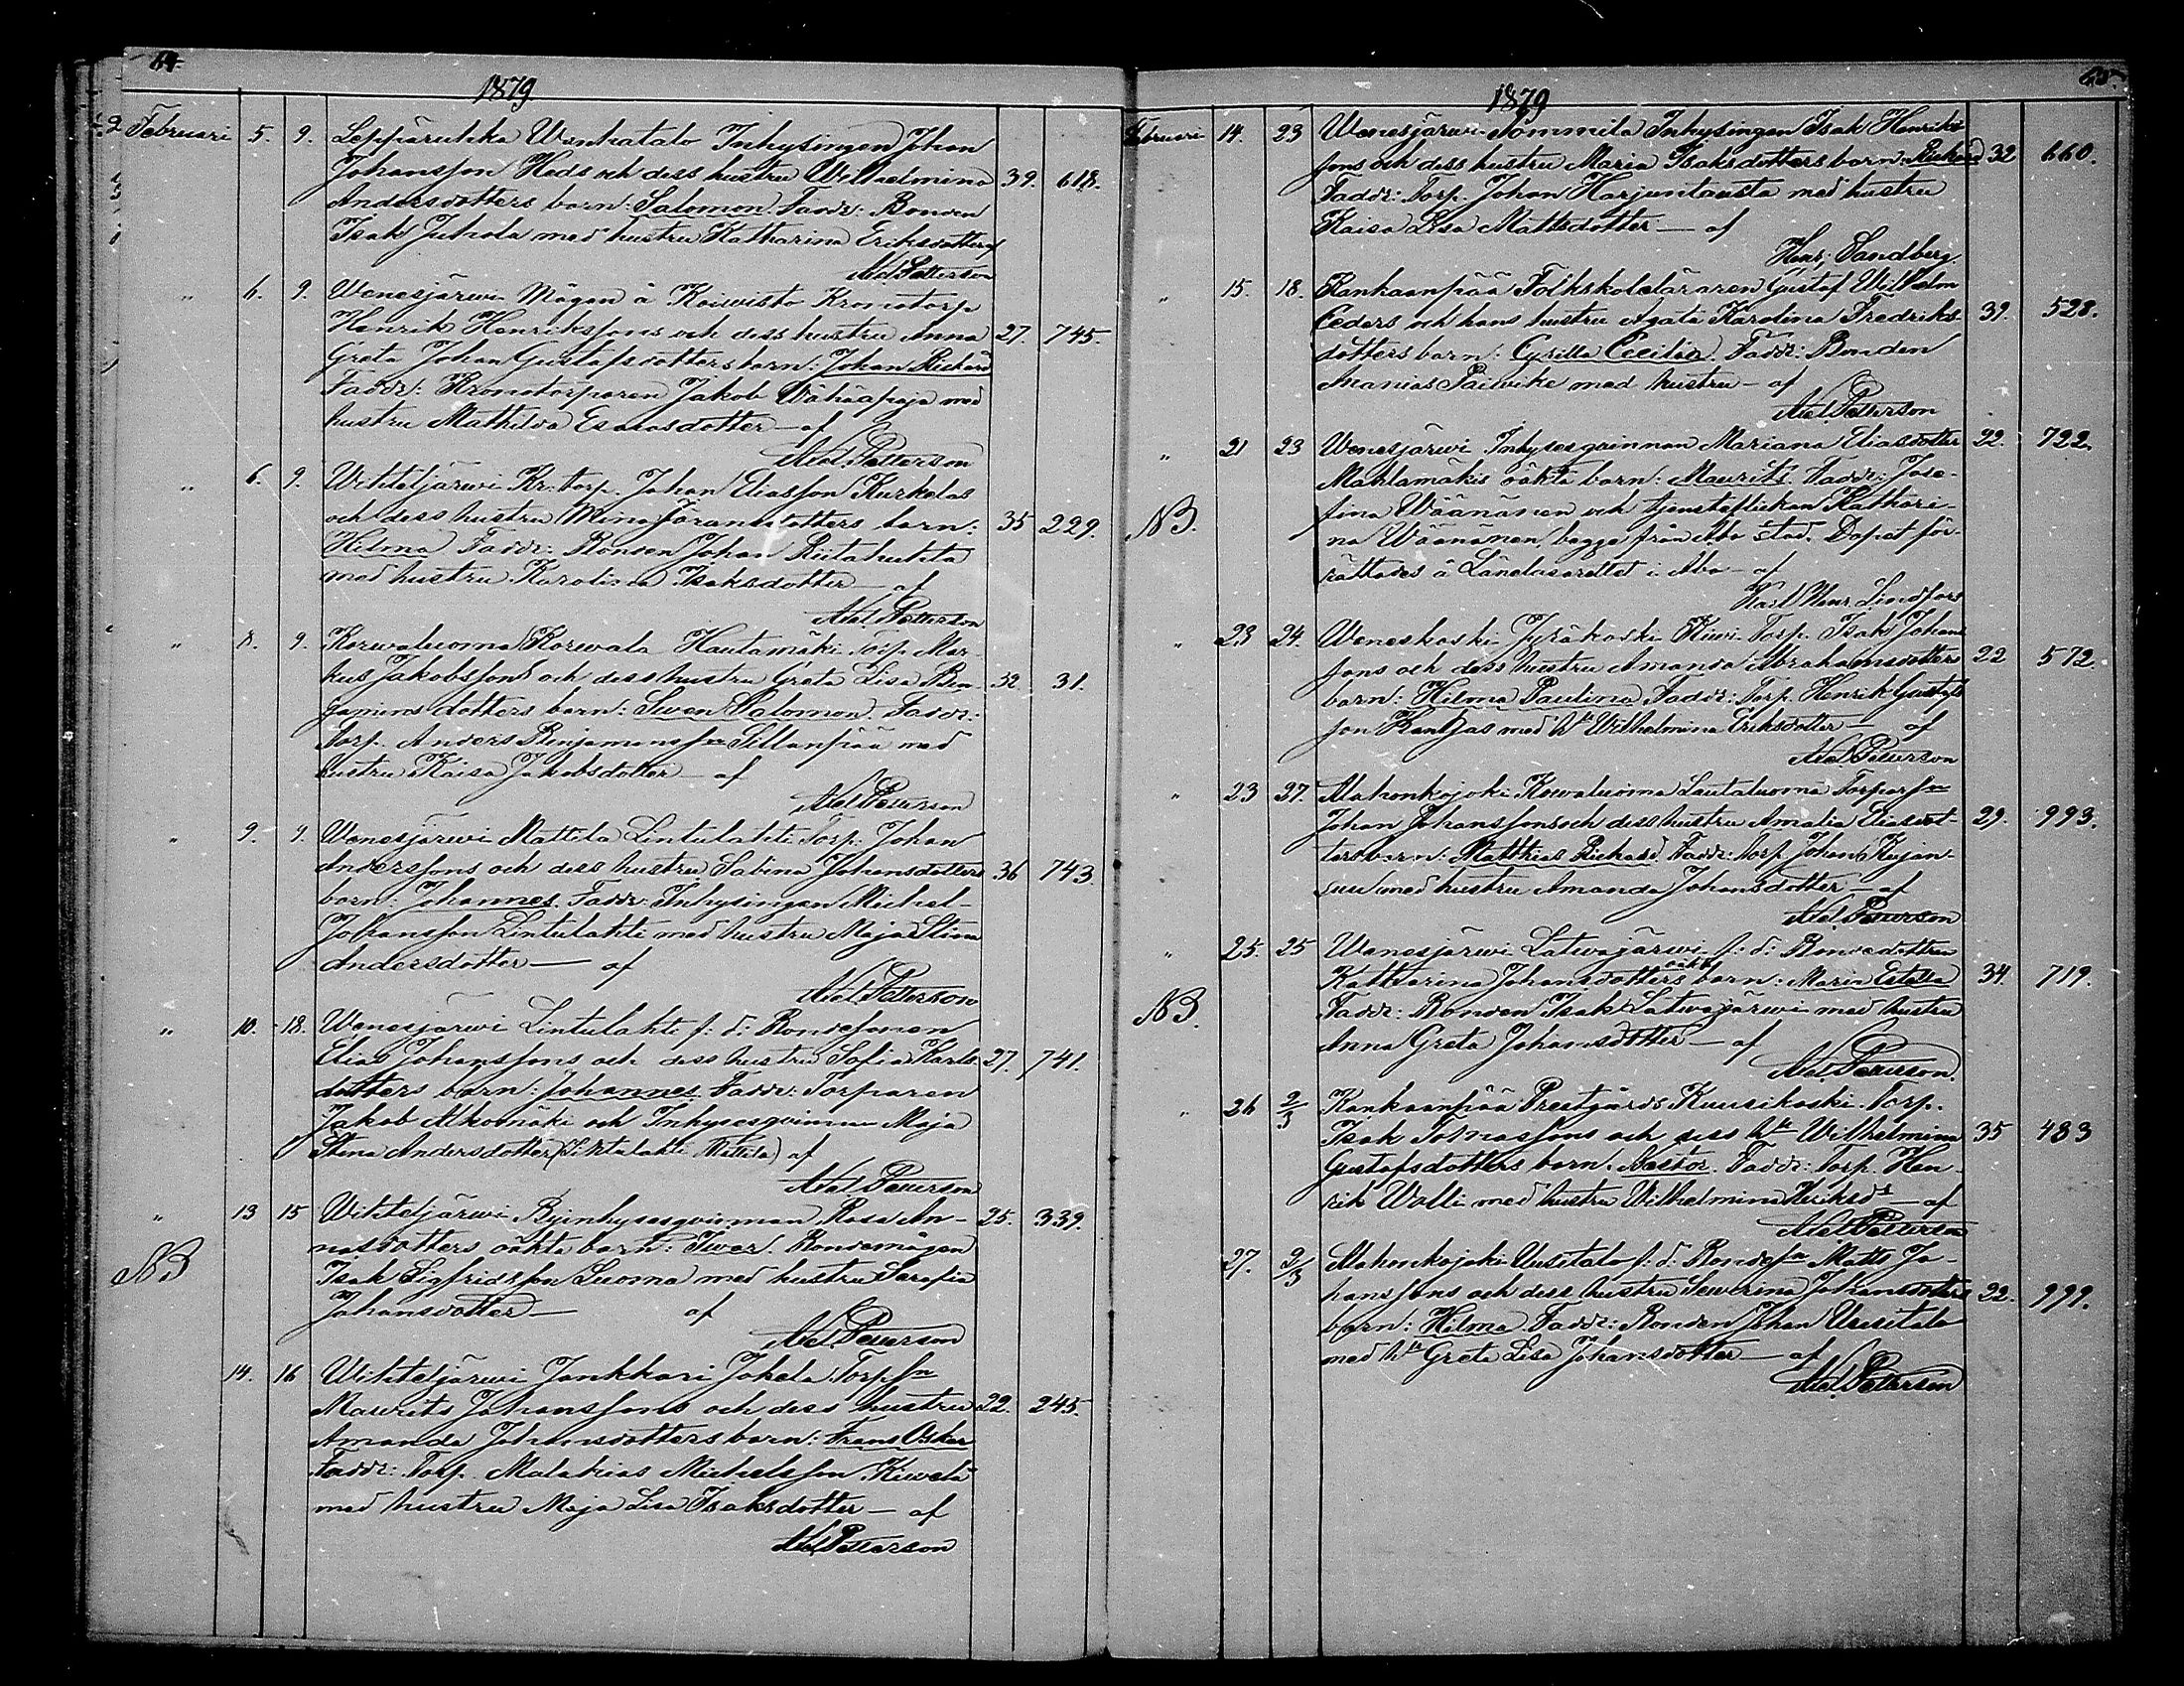 64.
1879
Februari 5. 9. Leppäruhka Wanhatalo Inhysingen Johan
Johansson Heds och dess hustru Wilhelmina 39. 618.
Andersdotters barn: Salomon. Faddr: Bonden
Isak Juhola med hustru Katharina Eriksdotter af
Axel Petterson
" 6. 9. Wenesjärwi Mågen å Koiwisto Kronotorp
Henrik Henrikssons och dess hustru Anna 27. 745.
Greta Johan Gustafsdotters barn: Johan Richard
Faddr: Kronotorparen Jakob Wähäpaja med
hustru Mathilda Esaiasdotter — af
Axel Petterson
" 6. 9. Wihteljärwi Kr: torp. Johan Eliasson Kurkelas
och dess hustru Mina Göransdotters barn: 35 229.
Hilma Faddr: Bonden Johan Riitahuhta
med hustru Karolina Isaksdotter — af
Axel Petterson
" 8. 9. Korwaluoma Korwala Hautamäki Torp. Mar-
kus Jakobssons och dess hustru Greta Lisa Ben- 32. 31.
jamins dotters barn: Swen Salomon. Faddr:
Torp. Anders Benjamins son Sillanpää med
hustru Kaisa Jakobsdotter — af
Axel Petterson
" 9. 9. Wenesjärwi Mattila Lintulahti Torp: Johan
Anderssons och dess hustru Sabina Johansdotters 36 743.
barn: Johannes. Faddr: Inhysingen Michel
Johansson Lintulahti med hustru Maja Stina
Andersdotter — af
Axel Petterson
" 10. 18. Wenesjärwi Lintulahti f: d: Bondesonen
Elias Johanssons och dess hustru Sofia Karls- 27. 741.
dotters barn: Johannes. Faddr: Torparen
Jakob Alkomäki och Inhysesqvinnan Maja
Stina Andersdotter (Lintulahti Mattila) af
Axel Petterson
" 13 15 Wihteljärwi Byinhysesqvinnan Rosa An- 25. 339.
nasdotters oäkta barn: Iwar. Bondemågen
NB Isak Sigfridsson Luoma med hustru Serafia
Johansdotter — af
Axel Petterson
14. 16 Wihteljärwi Jankkari Jokela Torp sn
Maurits Johanssons och dess hustru 22. 245.
Amanda Johansdotters barn: Frans Oskar
Faddr: Torp. Malakias Michelsson Kiwelä
med hustru Maja Lisa Isaksdotter — af
Axel Petterson
65.
1879
Februari 14. 23 Wenesjärwi Tommila Inhysingen Isak Henriks-
sons och dess hustru Maria Isaksdotters barn: Richard 32 660.
Faddr: Torp. Johan Harjuntausta med hustru
Kaisa Lisa Mattsdotter — af
Henr: Sandberg
" 15. 18. Kankaanpää Folkskoleläraren Gustaf Wilhelm
Ceders och hans hustru Agata Karolina Fredriks- 39. 528.
dotters barn: Cyrilla Cecilia. Faddr: Bonden
Ananias Paiwike med hustru — af
Axel Petterson
" 21 23 Wenesjärwi Inhysesqvinnan Mariana Eliasdotter 22. 722.
Mahlamäkis oäkta barn: Maurits. Faddr: Jose-
NB. fina Wäänänen och tjensteflickan Kathari-
na Wäänänen, begge från Åbo stad. Dopet för-
rättades å Länelasarettet i Åbo — af
Karl Henr. Lindfors
" 23 24. Weneskoski Jyräkoski Kiwi Torp. Isak Johans-
sons och dess hustru Amanda Abrahamsdotters 22 572.
barn: Hilma Paulina. Faddr: Torp. Henrik Gustafs-
son Kangas med h:u Wilhelmina Eriksdotter — af
Axel Petterson
" 23 27. Alahonkajoki Kowaluoma Lautaluoma Torpar sn
Johan Johanssons och dess hustru Amalia Eliasdot- 29. 993.
ters barn: Matthias Richard. Faddr: Torp. Johan Kujan-
suu med hustru Amanda Johansdotter — af
Axel Petterson
" 25. 25 Wenesjärwi Latwajärwi f: d: Bondedottren
Katharina Johansdotters oäkta barn: Maria Estella 34. 719.
NB. Faddr: Bonden Isak Latwajärwi med hustru
Anna Greta Johansdotter — af
Axel Petterson
" 26 2/3 Kankaanpää Prestgårds Kuusikoski Torp.
Isak Tomassons och dess h:u Wilhelmina 35 483
Gustafsdotters barn: Nestor. Faddr: Torp. Hen-
rik Walli med hustru Wilhelmina Henriksd:r — af
Axel Petterson
27. 2/3 Alahonkajoki Uusitalo f: d: Bonde sn Matts Jo-
hanssons och dess hustru Sewerina Johansdotters 22. 999.
barn: Hilma. Faddr: Bonden Johan Uusitalo
med h:u Greta Lisa Johansdotter — af
Axel Petterson